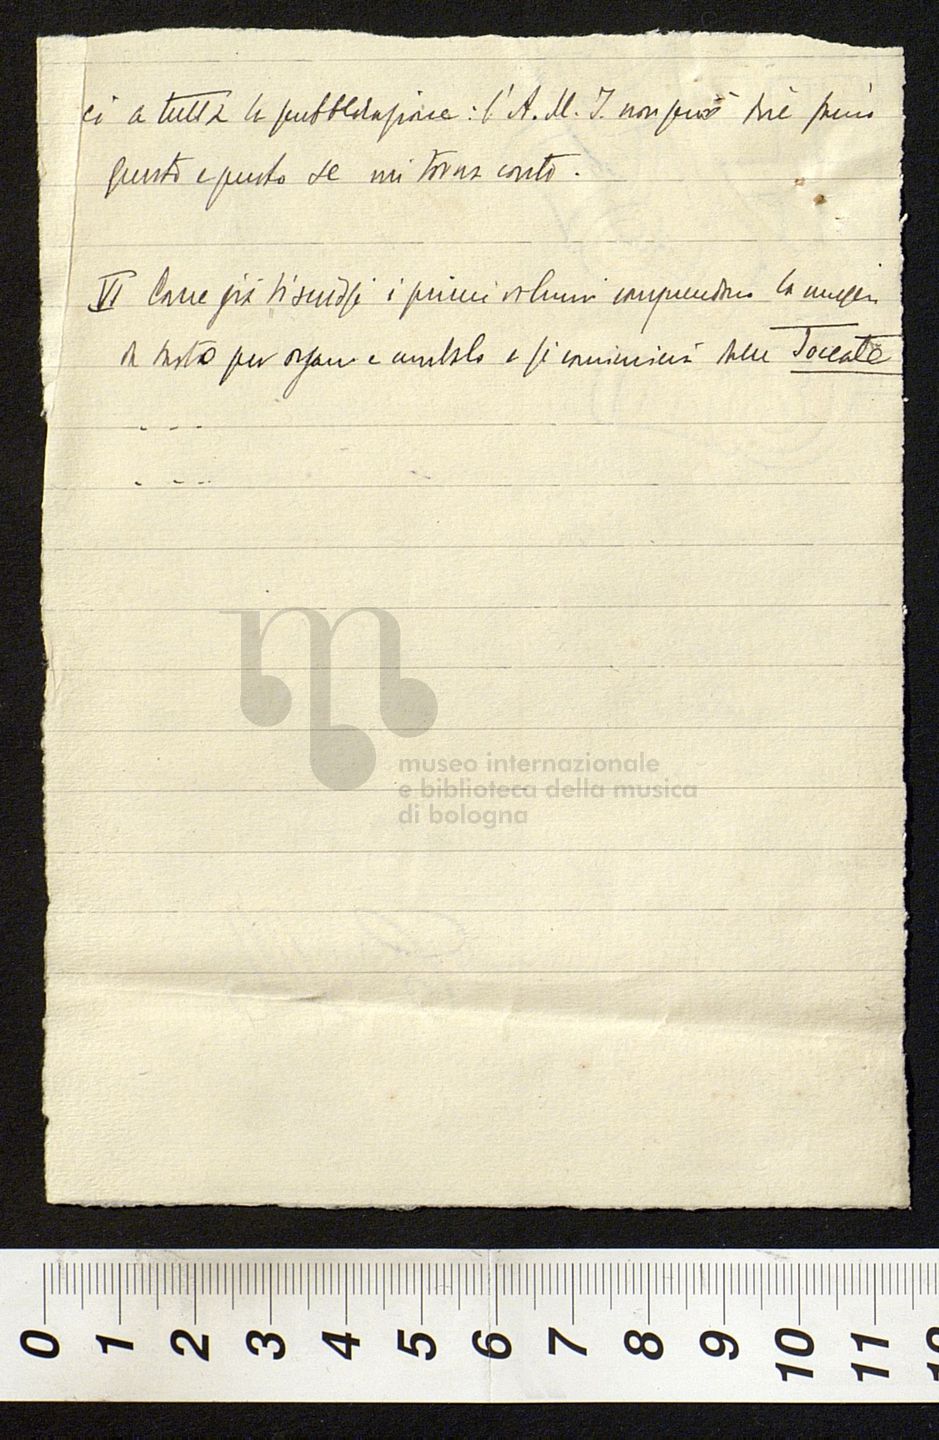 ci a tutta la pubblicazione: l' A. M. I. non può dire
questo e questo se mi torna conto.
VI Come già ti scrissi i primi volumi comprendono la
da tasto per organo e cembalo e si comincierà dalle Toccate
- - -
- - -
museo internazionale
e biblioteca della musica
di bologna
0 1 2 3 4 5 6 7 8 9 10 11